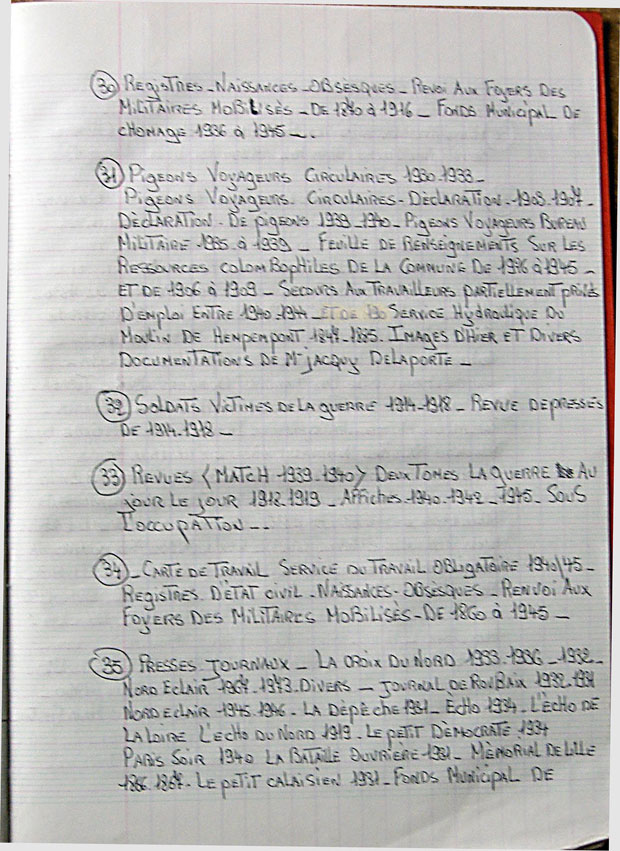 30 REGISTRES _ NAISSANCES _ OBSÈSQUES _ REVOI AUX FOYERS DES
MILITAIRES MOBILISÈS _ DE 1840 à 1916 _ FONDS MUNICIPAL DE
CHOMAGE 1936 à 1945 _ . .
31 PIGEONS VOYAGEURS CIRCULAIRES 1930-1933 _
PIGEONS VOYAGEURS. CIRCULAIRES - DÈCLARATION. 1903.1907 _
DÈCLARATION - DE PIGEONS 1939_1940_ PIGEONS VOYAGEURS BUREAU
MILITAIRE 1935 à 1939 _ FEUILLE DE RENSEIGNEMENTS SUR LES
RESSOURCES COLOMBOPHILES DE LA COMMUNE DE à 1945 _
ET DE 1906 à 1909 _ SECOURS AUX TRAVAILLEURS PARTIELLEMENT PRIVÈS
D'EMPLOI ENTRE 1940-1944 _ ET DE SERVICE HYDRAULIQUE DU
MOULIN DE HEMPEMPONT 1849-1885. IMAGES D'HIER ET DIVERS
DOCUMENTATIONS DE Mr JACQUY DELAPORTE _
32 SOLDATS VICTIMES DE LA GUERRE 1914-1918 _ REVUE DE PRESSES
DE 1914-1918 _
33 REVUES (MATCH 1939-1940) DEUX TOMES LA GUERRE AU
JOUR LE JOUR 1912-1919 _ AFFICHES 1940-1942 _ 1945_ SOUS
L'OCCUPATION _ _
34 _ CARTE DE TRAVAIL SERVICE DU TRAVAIL OBLIGATOIRE 1940/45 _
REGISTRES D'ÈTAT CIVIL _ NAISSANCES - OBSESQUES _ RENVOI AUX
FOYERS DES MILITAIRES MOBILISÈS - DE 1860 à 1945 _
35 PRESSES JOURNAUX _ LA CROIX DU NORD 1933-1936 _ 1932_
NORD ECLAIR 1967.1973.DIVERS _ JOURNAL DE ROUBAIX 1932-1931
NORD ECLAIR 1945.1946 - LA DÈPÈCHE 1931_ ECHO 1934. L'ÈCHO DE
LA LOIRE L'ÈCHO DU NORD 1919. LE PETIT DÈMOCRATE 1934
PARIS SOIR 1940 LA BATAILLE OUVRIÈRE 1931 _ MÈMORIAL DE LILLE
1866.1867. LE PETIT CALAISIEN 1931_ FONDS MUNICIPAL DE